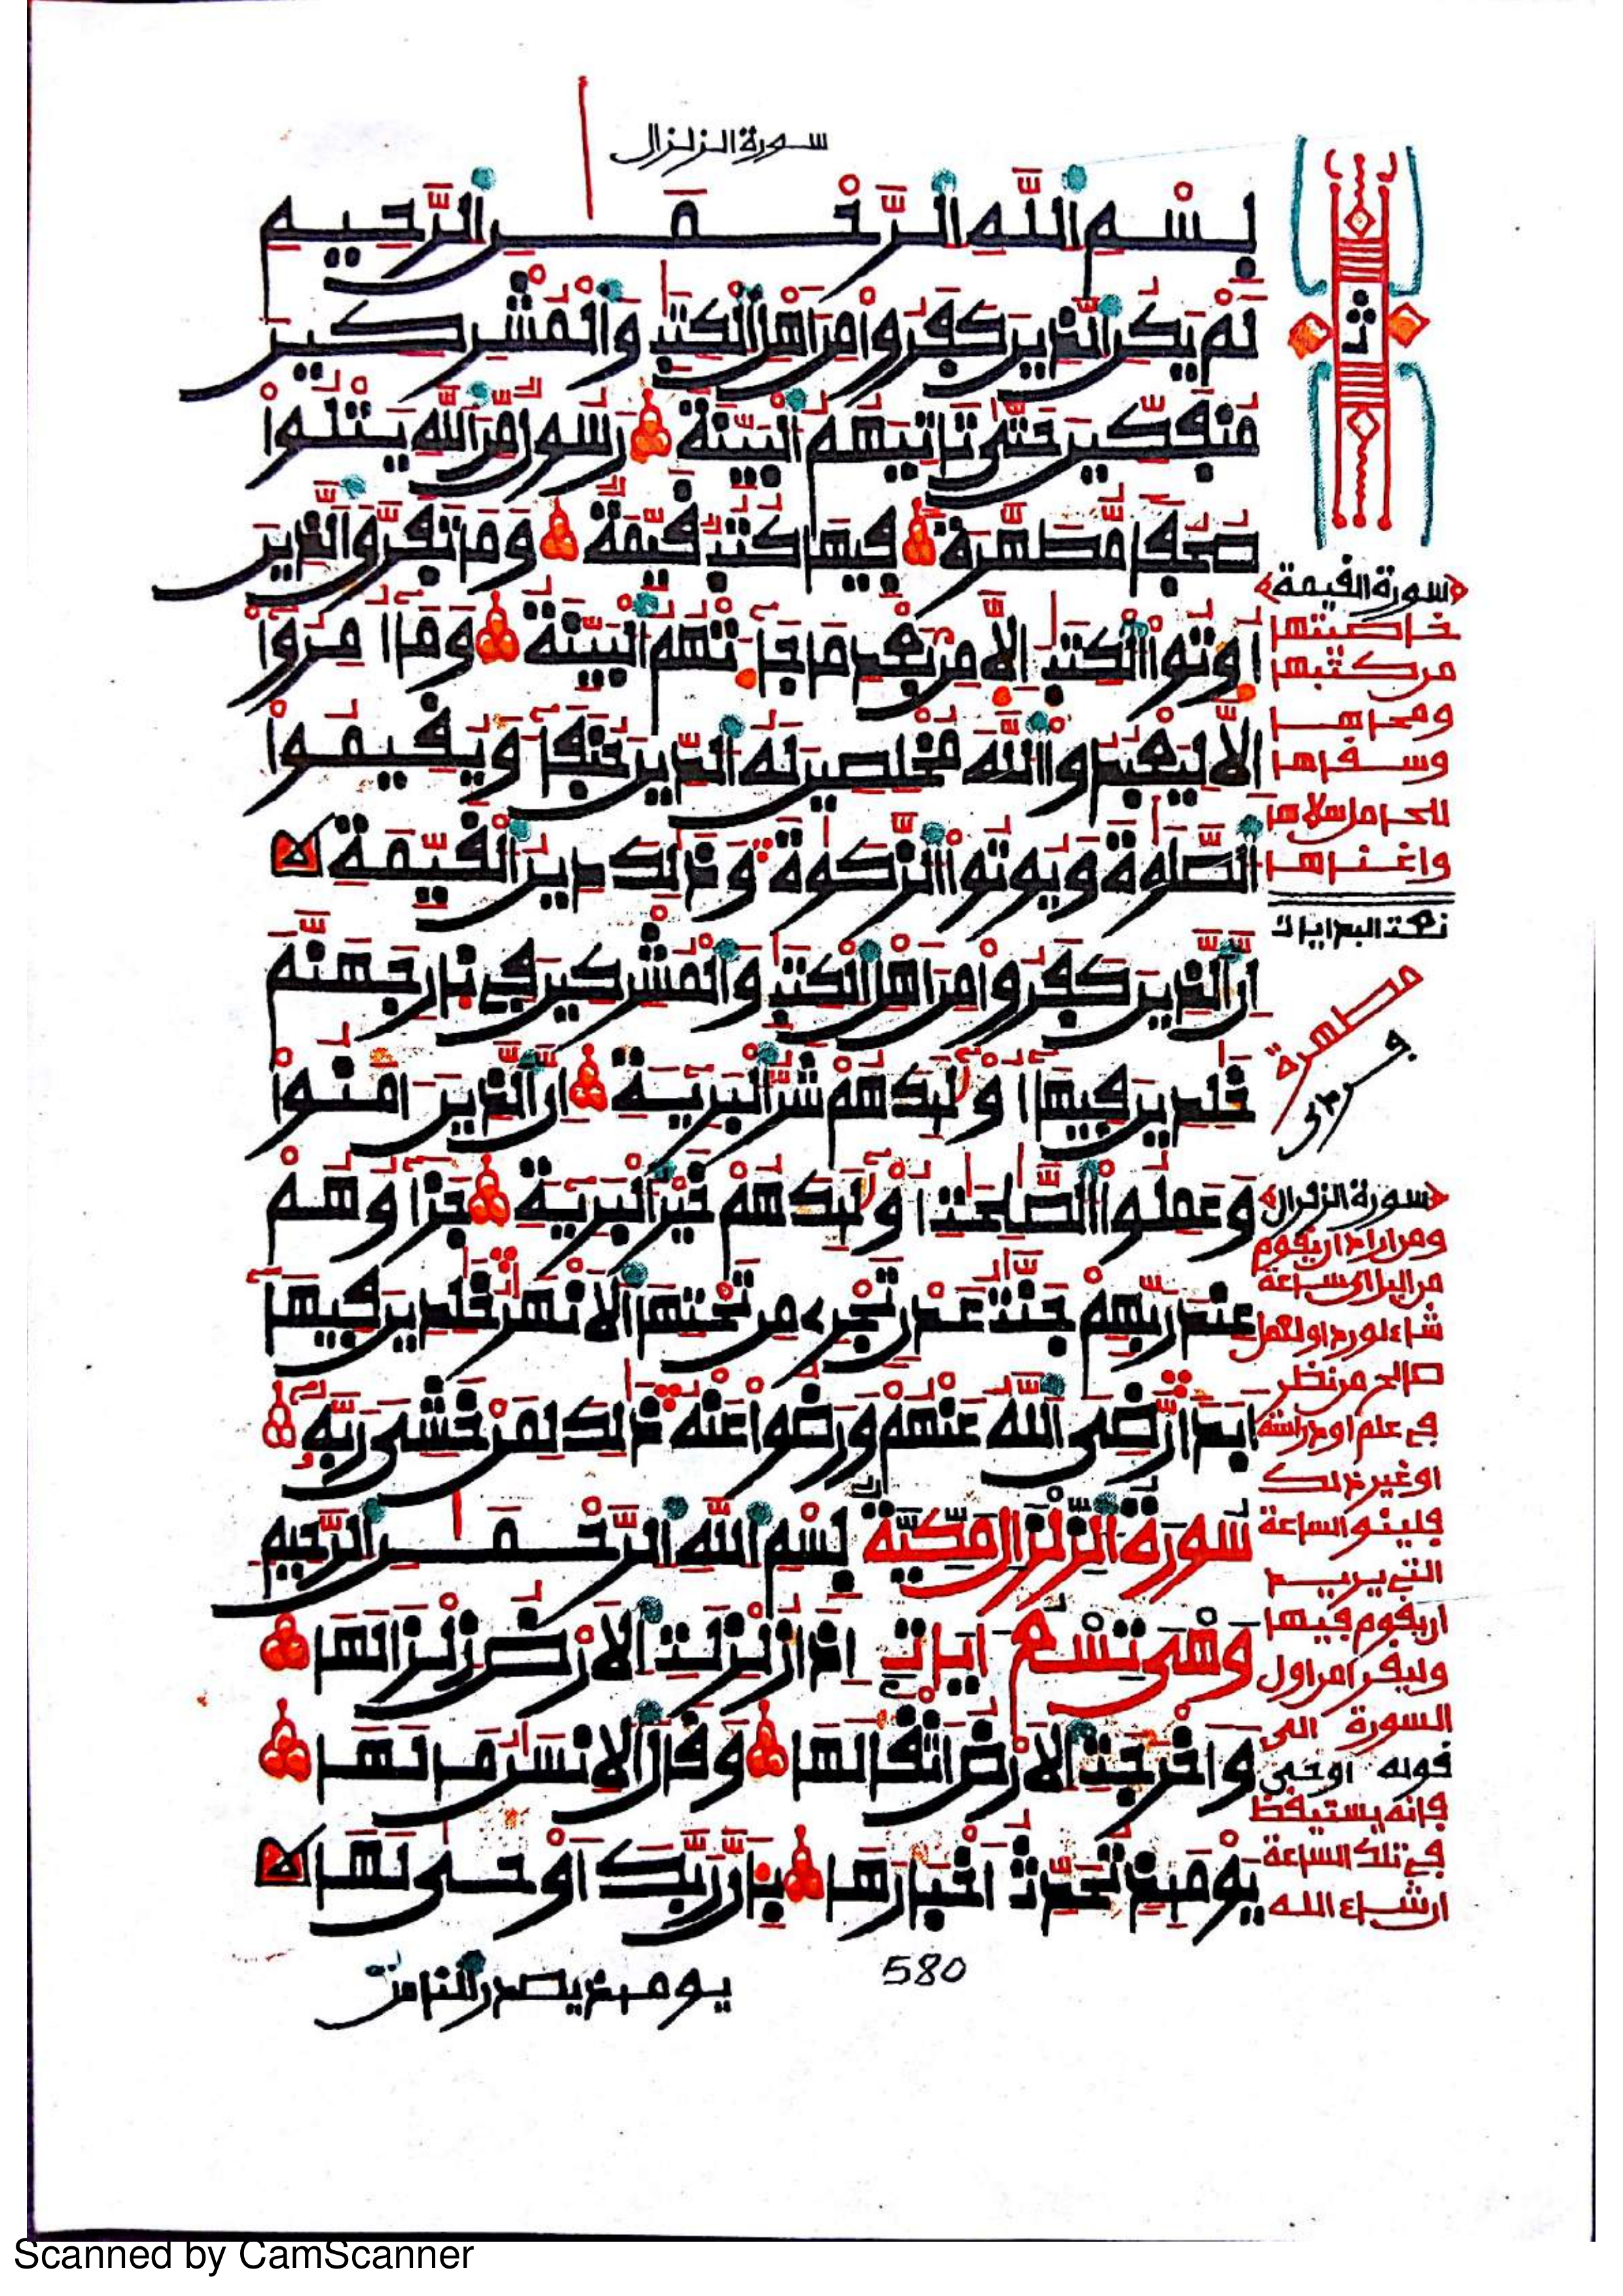 سورة الزلزال
بِسْمِ اللَّهِ الرَّحْمَٰنِ الرَّحِيمِ
لَمْ يَكُنِ الَّذِينَ كَفَرُوا مِنْ أَهْلِ الْكِتَٰبِ وَالْمُشْرِكِينَ
مُنفَكِّينَ حَتَّىٰ تَاتِيَهُمُ الْبَيِّنَةُ رَسُولٌ مِّنَ اللَّهِ يَتْلُوا
صُحُفًا مُّطَهَّرَةً فِيهَا كُتُبٌ قَيِّمَةٌ وَمَا تَفَرَّقَ الَّذِينَ
أُوتُوا الْكِتَٰبَ إِلَّا مِنْ بَعْدِ مَا جَآءَتْهُمُ الْبَيِّنَةُ وَمَآ أُمِرُوٓا
إِلَّا لِيَعْبُدُوا اللَّهَ مُخْلِصِينَ لَهُ الدِّينَ حُنَفَآءَ وَيُقِيمُوا
الصَّلَوٰةَ وَيُوتُوا الزَّكَوٰةَ وَذَٰلِكَ دِينُ الْقَيِّمَةِ
إِنَّ الَّذِينَ كَفَرُوا مِنْ أَهْلِ الْكِتَٰبِ وَالْمُشْرِكِينَ فِي نَارِ جَهَنَّمَ
خَٰلِدِينَ فِيهَآ أُوْلَٰٓئِكَ هُمْ شَرُّ الْبَرِيٓـَٔةِ إِنَّ الَّذِينَ ءَامَنُوا
وَعَمِلُوا الصَّٰلِحَٰتِ أُوْلَٰٓئِكَ هُمْ خَيْرُ الْبَرِيٓـَٔةِ جَزَآؤُهُمْ
عِندَ رَبِّهِمْ جَنَّٰتُ عَدْنٍ تَجْرِي مِن تَحْتِهَا الْأَنْهَٰرُ خَٰلِدِينَ فِيهَآ
أَبَدًا رَّضِيَ اللَّهُ عَنْهُمْ وَرَضُوا عَنْهُ ذَٰلِكَ لِمَنْ خَشِيَ رَبَّهُ
سُورَةُ الزِّلْزَالِ مَكِّيَّةٌ بِسْمِ اللَّهِ الرَّحْمَٰنِ الرَّحِيمِ
وَهِيَ تِسْعُ ءَايَاتٍ إِذَا زُلْزِلَتِ الْأَرْضُ زِلْزَالَهَا
وَأَخْرَجَتِ الْأَرْضُ أَثْقَالَهَا وَقَالَ الْإِنسَٰنُ مَا لَهَا
يَوْمَئِذٍ تُحَدِّثُ أَخْبَارَهَا بِأَنَّ رَبَّكَ أَوْحَىٰ لَهَا
580
يومئذ يصدر الناس
ثمن
سورة القيمة
خاصيتها
من كتبها
ومحاها
وسقاها
للحامل سلاها
واغناها
مطهرة
سورة الزلزال
ومن اراد ان يقوم
من اليل اي ساعة
شاء لورد او لعمل
صالح من نظر
في علم او دراسة
او غير ذلك
فلينو الساعة
التي يريد
ان يقوم فيها
وليقرا من اول
السورة الى
قوله اوحى
فانه يستيقظ
في تلك الساعة
ان شاء الله
Scanned by CamScanner